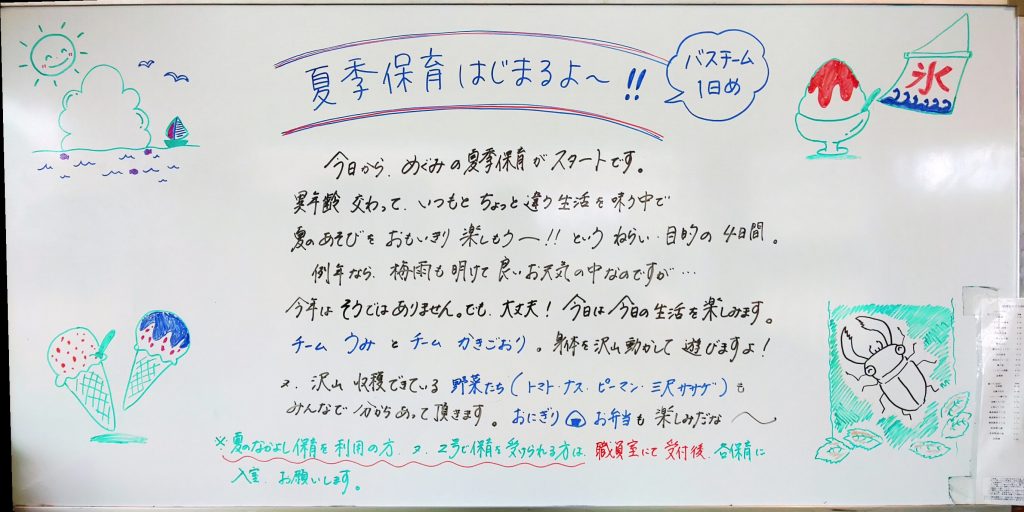 夏季保育はじまるよ〜!!
バスチーム
1日め
氷
今日から、めぐみの夏季保育がスタートです。
異年齢 交わって、いつもと ちょっと違う生活を味う中で
夏のあそびを おもいきり 楽しもうー!! という ねらい・目的の 4日間。
例年なら、梅雨も明けて 良いお天気の中なのですが…
今年は そうではありません。でも、大丈夫! 今日は今日の生活を楽しみます。
チーム うみ と チーム かきごおり。身体を沢山動かして 遊びますよ!
又、沢山 収穫できている 野菜たち(トマト・ナス・ピーマン・三尺ササゲ)も
みんなで 分けあって頂きます。おにぎり お弁当も 楽しみだな〜
※夏のなかよし保育を利用の方、又、2号で保育を受けられる方は、職員室にて 受付後、各保育に
入室、お願いします。